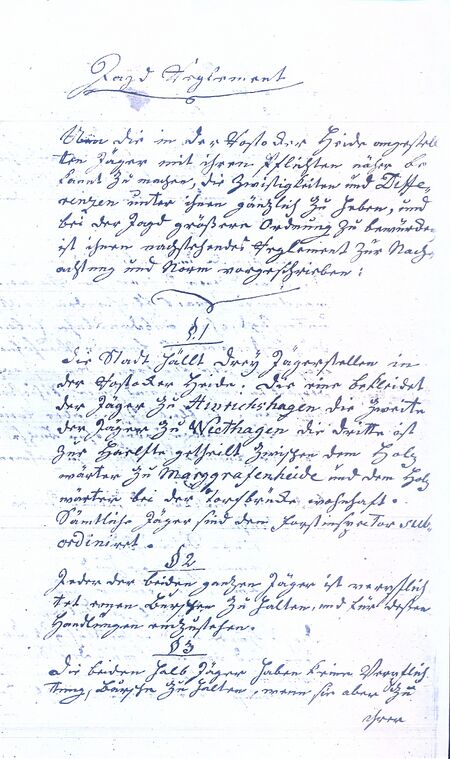 Jagd Reglement
Um die in der Rostocker Heide angestell
ten Jäger mit ihren Pflichten näher be
kannt zu machen, die Zwistigkeiten und Diffe-
renzen unter ihnen gänzlich zu heben, und
bei der Jagd größere Ordnung zu bewürken
ist ihnen nachstehendes Reglement zur Nach
achtung und Norm vorgeschrieben:
§.1
Die Stadt hällt drey Jägerstellen in
der Rostocker Heide. Die eine bekleidet
der Jäger zu Hinrichshagen die zweite
der Jäger zu Wiethagen die dritte ist
zur Haelfte getheilt zwischen dem Holz
wärter zu Marggrafenheide und dem Holz
wärter bei der Torfbrücke wohnhaft.
Sämtliche Jäger sind dem Forstinspector sub-
ordiniret.
§2
Jeder der beiden ganzen Jäger ist verpflich
tet einen Burschen zu halten, und für dessen
Handlungen einzustehen.
§3
Die beiden halb Jäger haben keine Verpflich
tung, Bursche zu halten, wenn sie aber zu
ihrer